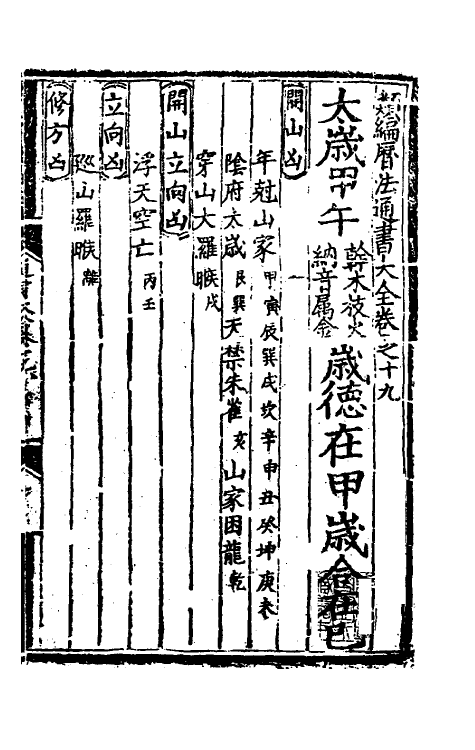 類編曆法通書大全卷之十九
太歲甲午 幹木枝火 納音屬金 歲德在甲歲合在己
開山凶
年尅山家 甲寅辰巽戌坎辛申丑癸坤庚未
陰府太歲 艮巽 天禁朱雀 亥 山家困龍 乾
穿山大羅睺 戌
開山立向凶
浮天空亡 丙壬
立向凶
巡山羅睺
修方凶